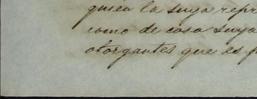 quiera la suya repr
como de cosa suya
otorgantes que es p